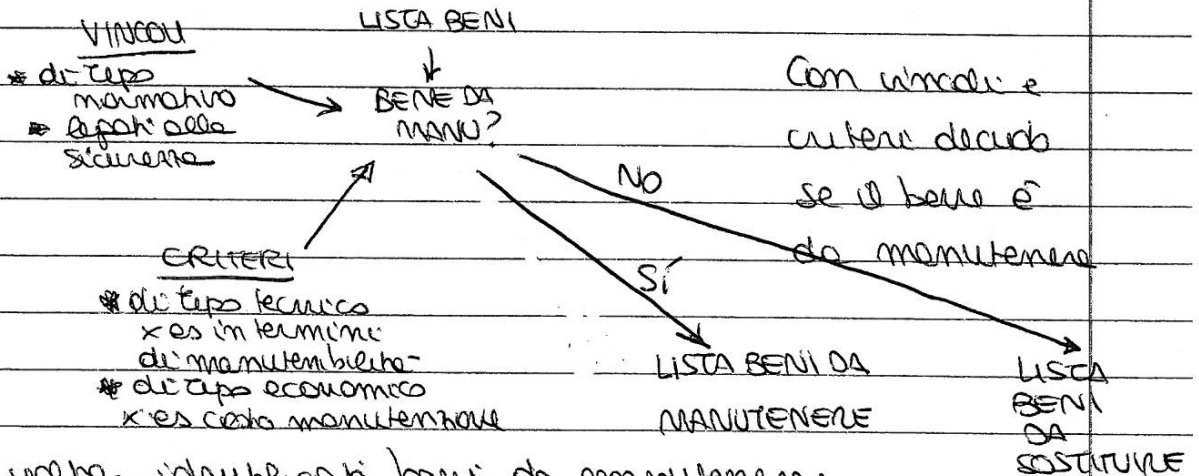 VINCOLI
* di tipo
normativo
* legati alla
sicurezza
LISTA BENI
BENE DA
MANU?
Con vincoli e
criteri decido
se il bene è
da manutenere
NO
SÍ
CRITERI
* di tipo tecnico
x es in termini
di manutenibilità
* di tipo economico
x es costo manutenzione
LISTA BENI DA
MANUTENERE
LISTA
BENI
DA
SOSTITUIRE
volta identificati beni da manutenere